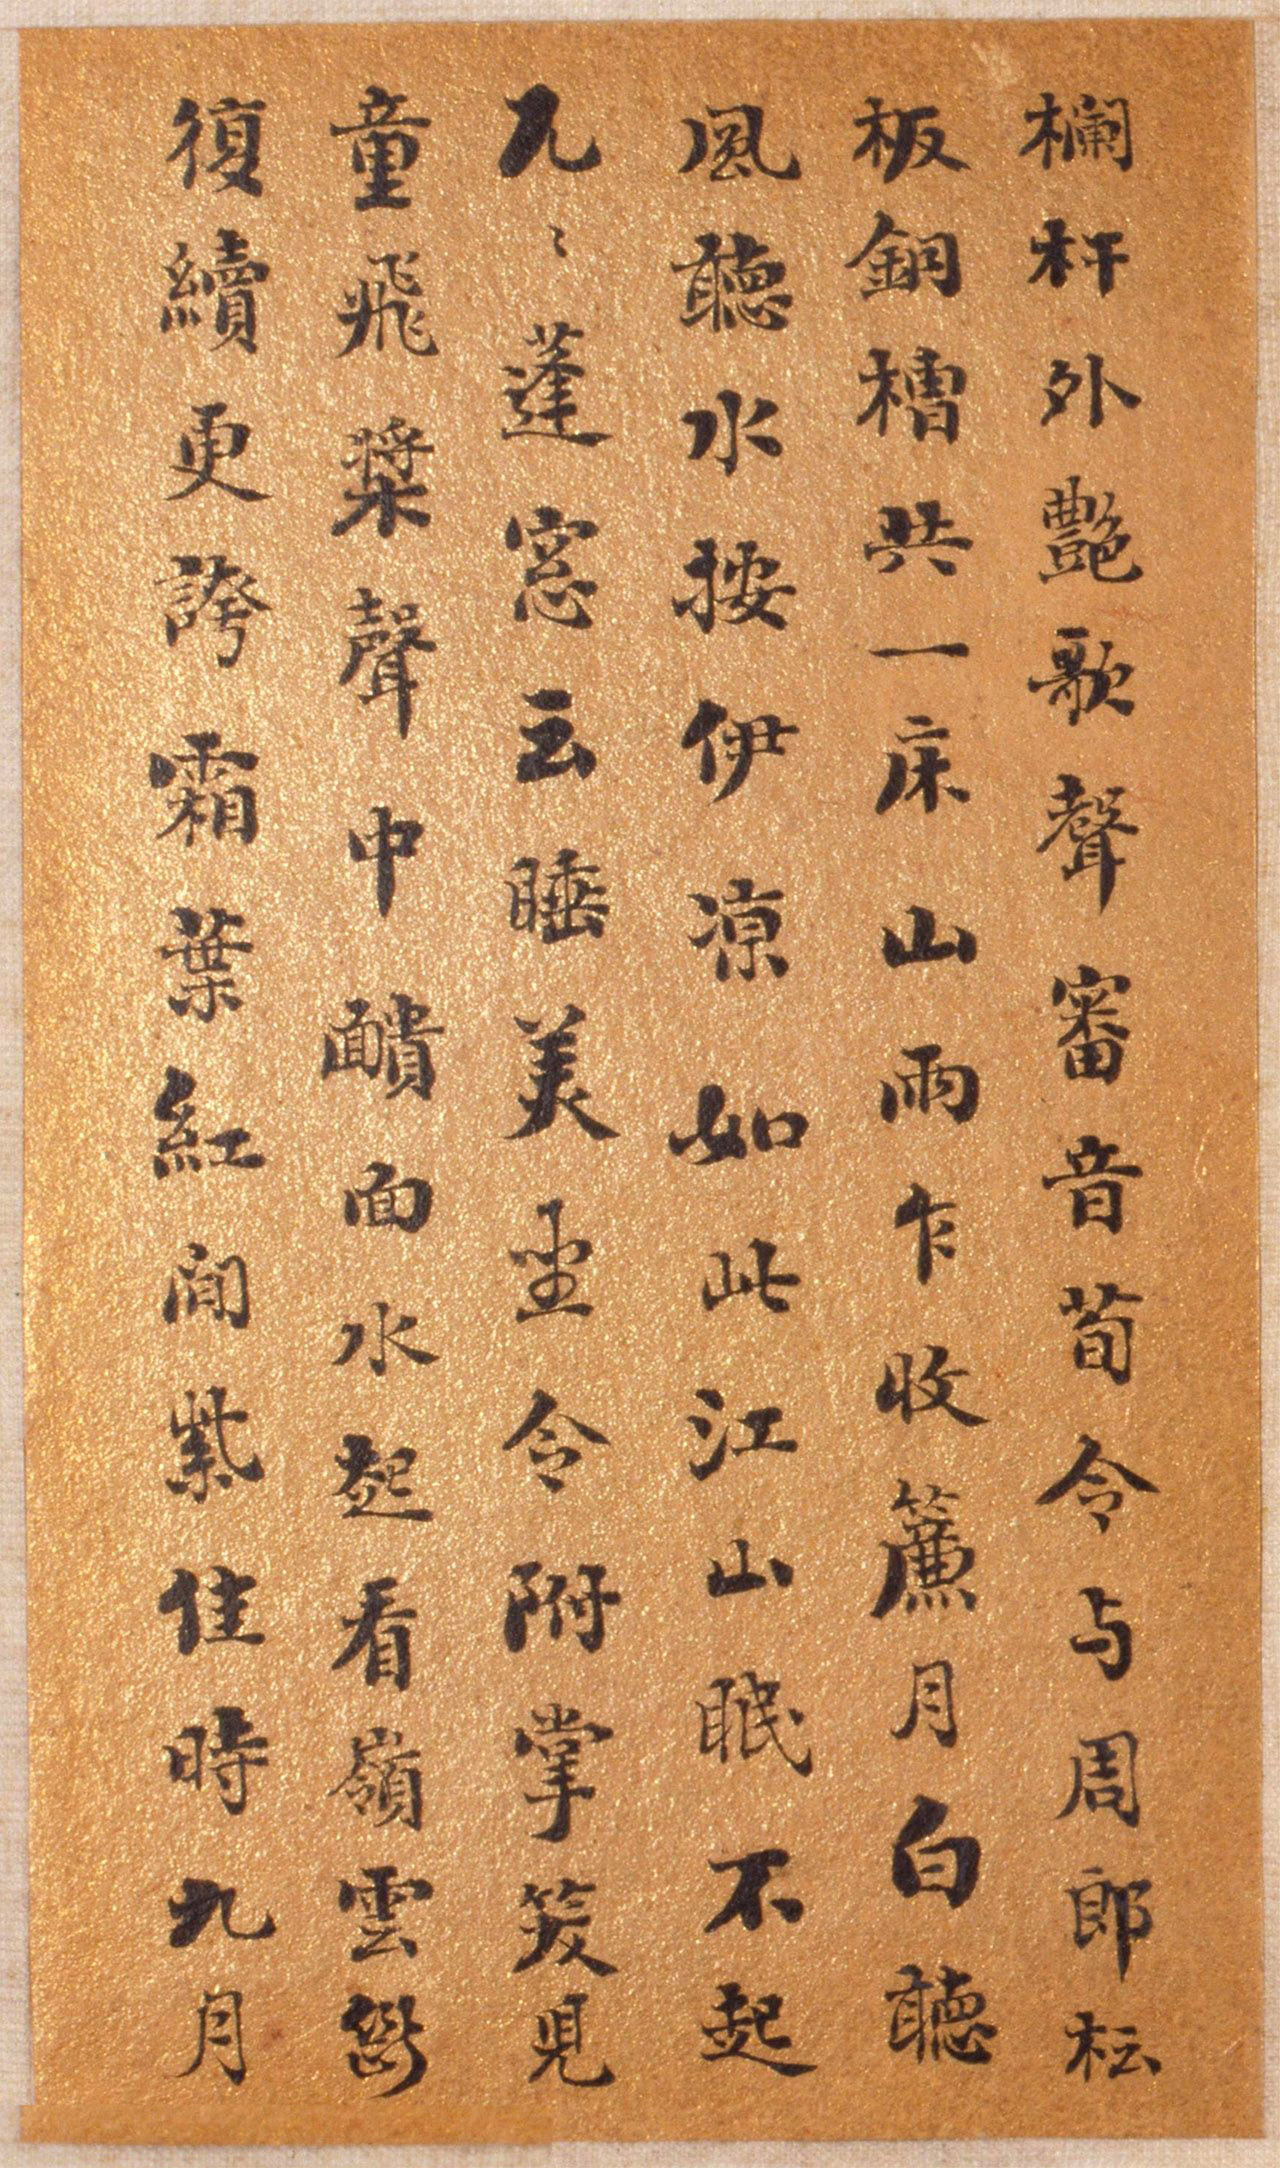 欄杆外艷歌聲審音荀令与周郎枟
板銅槽共一床山雨乍收簾月白聽
風聽水按伊涼如此江山眠不起
兀〻蓬窓云睡美坐令附掌笑見
童飛槳聲中靧面水起看嶺雲断
復續更誇霜葉紅間紫佳時九月